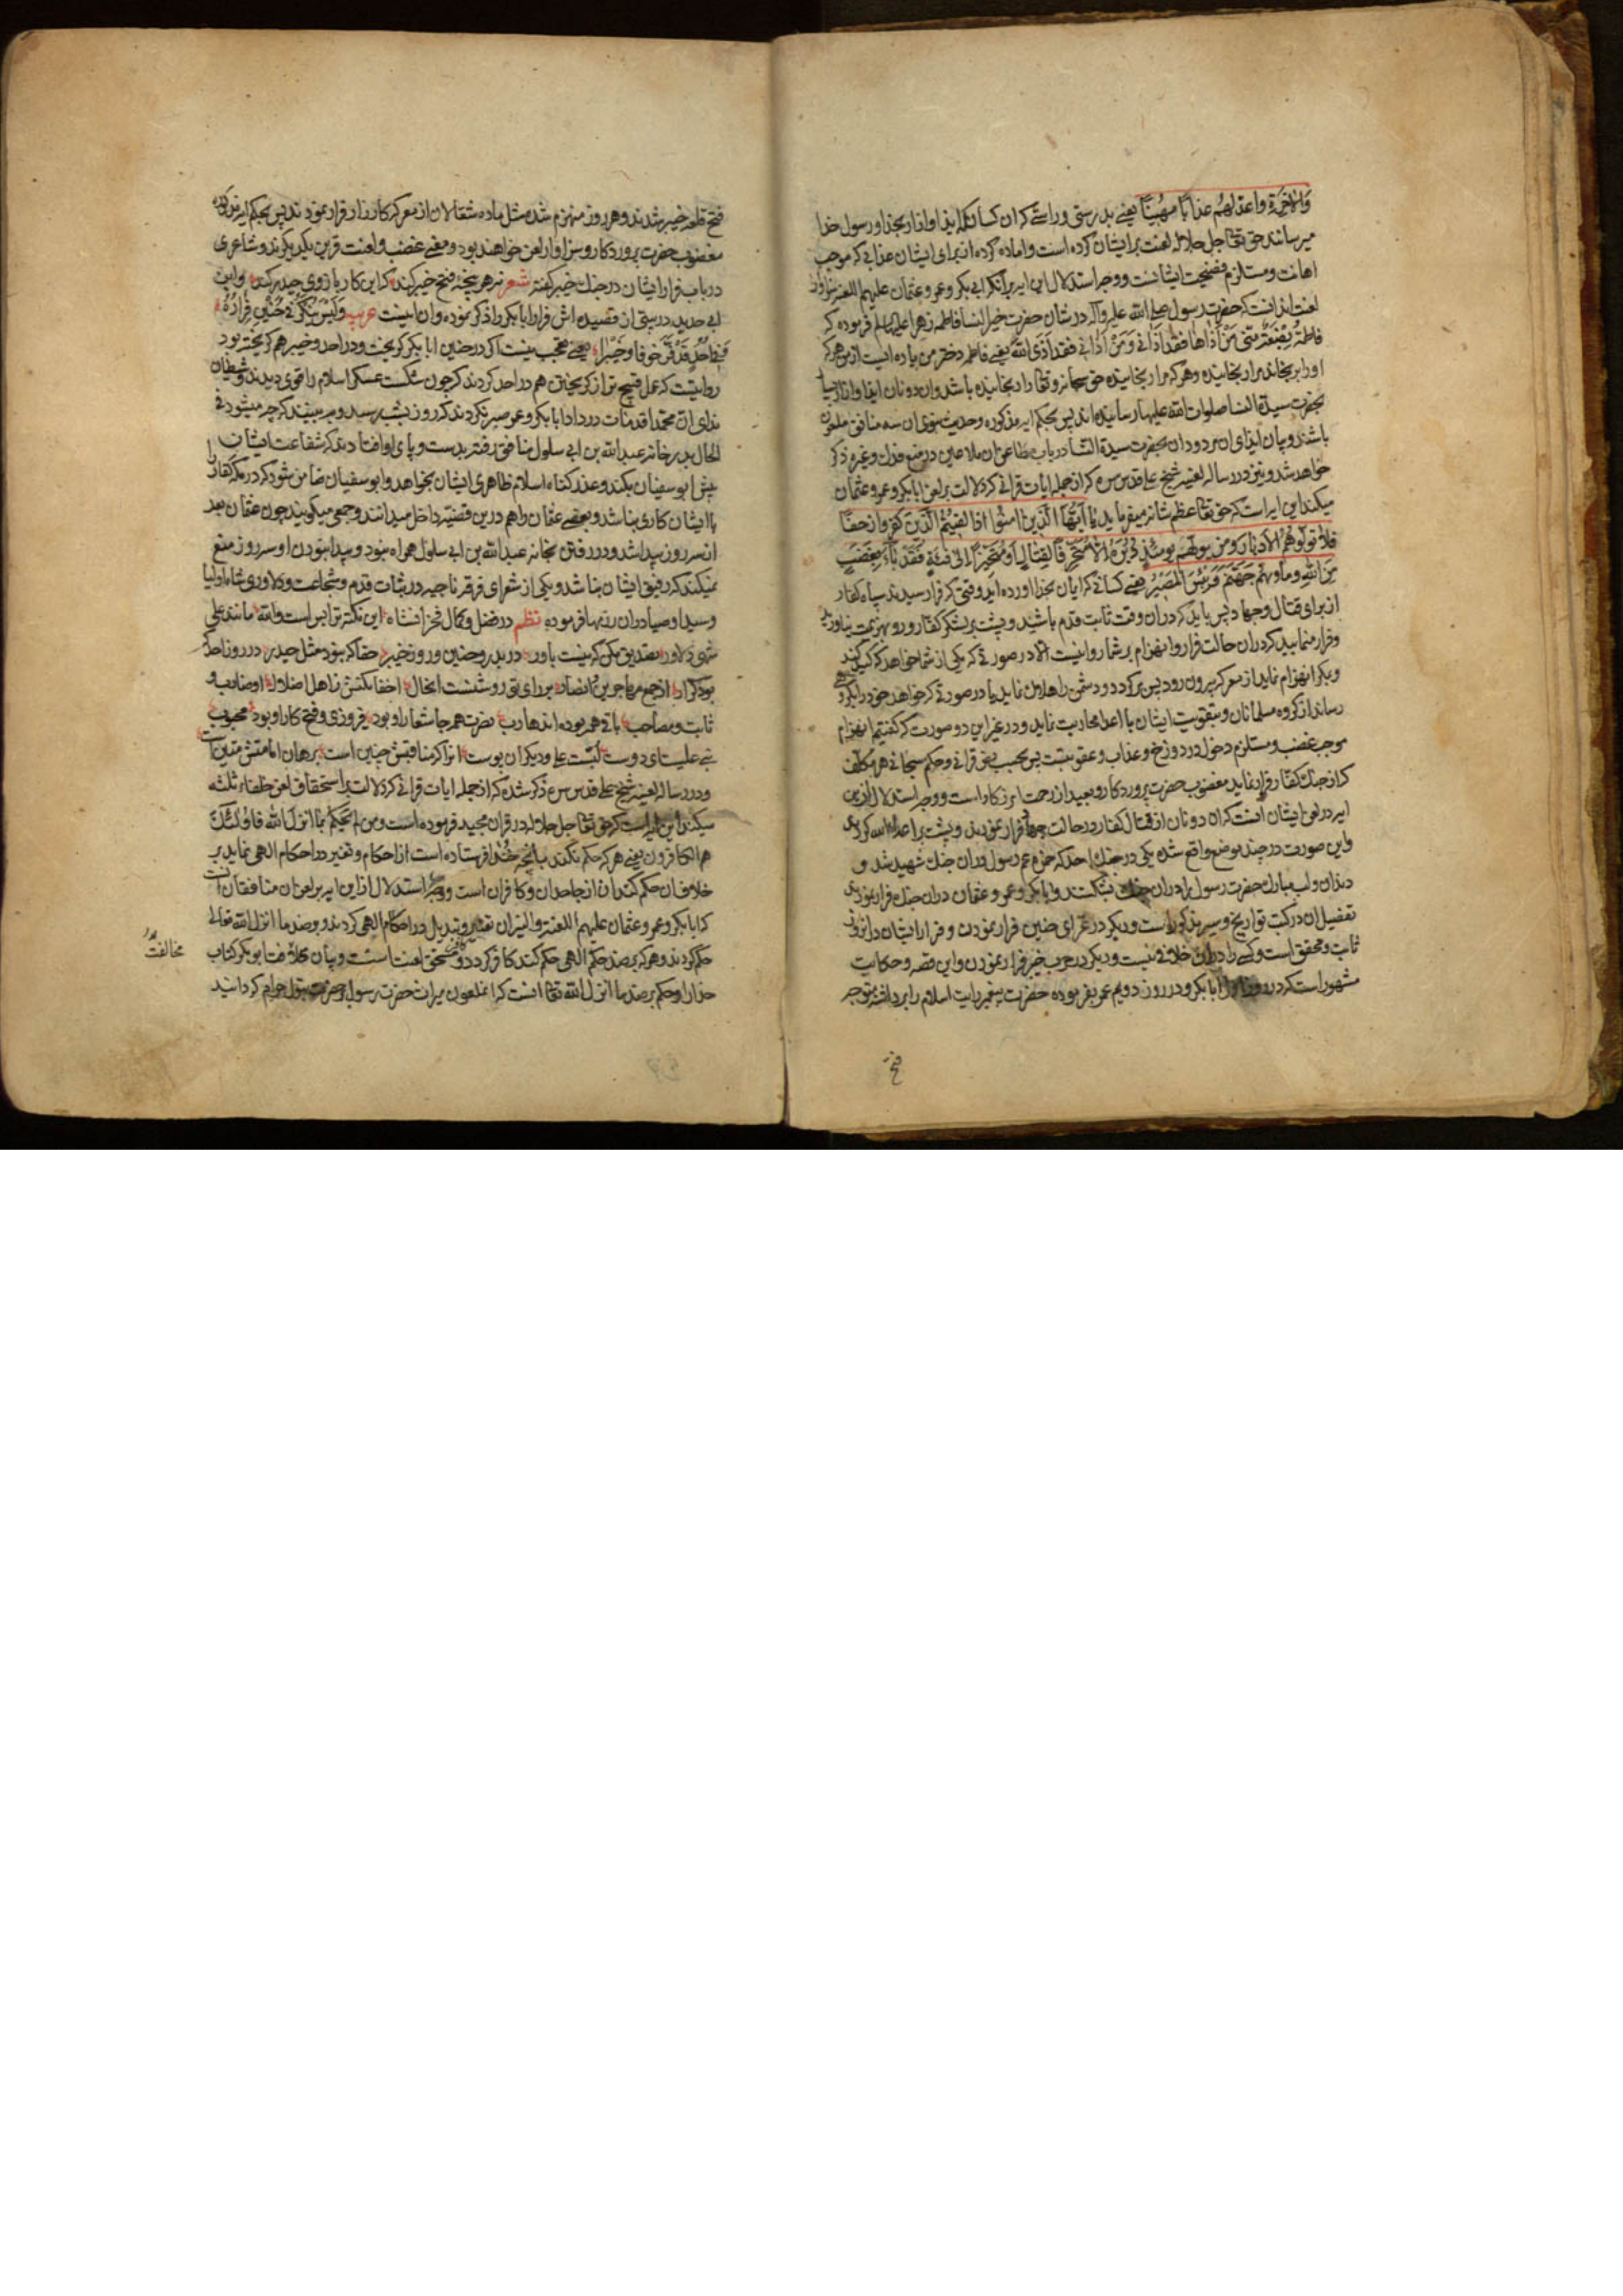 وَالْاٰخِرَةِ واعدّ لهُم عذابًا مهُینًا یعنے بدرستی وراستے کہ ان کسانکہ ایذا وازار بخدا ورسول خدا
میرسانند حق تعالی جل جلاله لعنت بر ایشان کرده است واماده کرده از برای ایشان عذابی کہ موجب
اهانت ومستلزم فضیحت ایشانست ووجه استدلال این ایه بر آنکہ ابی بکر وعمر وعثمان علیهم اللعنه سزاوار
لعنت اند انست کہ حضرت رسول صلی الله علیه وآله در شان حضرت خیر النسا فاطمه زهرا علیها السلم فرموده کہ
فاطمةُ بِضْعَةٌ مِنّی مَنْ اٰذاها فقد اٰذانی وَمَنْ اٰذانی فقد اٰذَی اللهَ یعنے فاطمه دختر من پاره ایست از من هر کہ
اورا برنجاند مرا رنجانیده وهر کہ مرا رنجانیده حق سبحانه وتعالی را رنجانیده باشد وان دونان ایذا وازار بسیار
بحضرت سیدة النسا صلوات الله علیها رسانیده اند پس بحکم ایه مذکوره وحدیث نبوی ان سه منافق ملعون
باشند وبیان ایذای ان مردودان بحضرت سیدة النسا در باب مطاعن ان ملاعین در منع فدک وغیره ذکر
خواهد شد ونیز در رساله لعنیه شیخ علی قدس سره کہ از جمله ایات قرانی کہ دلالت بر لعن ابابکر وعمر وعثمان
میکند این ایه است کہ حق تعالی عظم شانه میفرماید یٰا اَیّهَا الَّذینَ اٰمنُوا اذا لقیتُمُ الّذینَ کفروا زحفًا
فلا تولّوهُمُ الادبارَ ومن یولّهم یومئذٍ دُبُرَهُ الّا مُتَحَرِّفًا لِقِتالٍ اَو مُتَحَیِّزًا الیٰ فئةٍ فَقَدْ بآءَ بِغَضَبٍ
مِنَ اللهِ ومأویهُمْ جَهَنَّمُ وَبِئْسَ المَصیٖرُ یعنے کسانے کہ ایمان بخدا اورده اید وقتی کہ قرار رسیدند سپاه کفار
از برای قتال وجهاد پس باید کہ در ان وقت ثابت قدم باشید وپشت بر لشکر کفار ورو بهزیمت نیاورید
وفرار منمایید کہ در ان حالت فرار وانهزام بر شما روا نیست الا در صورتے کہ یکی از شما خواهد کہ کید کند
وبکر انهزام نماید از معرکہ بیرون رود پس برگردد ودشمن را هلاک نماید یا در صورتے کہ خواهد خود را بگروهی
رساند از گروه مسلمانان وبتقویت ایشان با اعدا محاربت نماید ودر غیر این دو صورت کہ گفتیم انهزام
موجب غضب ومستلزم دخول در دوزخ وعذاب وعقوبتست پس بحسب نص قرانی وحکم سبحانی هر مکلف
کہ از جنک کفار فرار نماید مغضوب حضرت پروردکار وبعید از رحمت افریدکار است ووجه استدلال ازین
ایه در لعن ایشان انست کہ ان دونان از قتال کفار در حالت جهاد فرار نمودند وپشت بر اعداء الله کردند
واین صورت در چند موضع واقع شده یکی در جنک احد کہ حمزه عم رسول در ان جنک شهید شد و
دندان ولب مبارک حضرت رسول را در ان جنک شکستند وابابکر وعمر وعثمان در ان جنک فرار نمودند
تفصیل ان در کتب تواریخ وسیر مذکور است ودیکر در غزای حنین فرار نمودن وفرار ایشان در انروز
ثابت ومحقق است وکسے را در ان خلافے نیست ودیکر در حرب خیبر فرار نمودن واین قصه وحکایت
مشهور است کہ در روز اول ابابکر ودر روز دویم عمر بفرموده حضرت پیغمبر رایت اسلام را برداشته متوجه
فتح
فتح قلعه خیبر شدند وهر روز منهزم شده مثل ماده شغالان از معرکہ کارزار فرار نمودند پس بحکم ایه مذکوره
مغضوب حضرت پروردکار وسزاوار لعن خواهند بود ومعنے غضب ولعنت قرین یکدیکرند وشاعری
در باب فرار ایشان در جنک خیبر کفته شعر نه هر پنجه فتح خیبر کند کہ این کار بازوی حیدر کند وابن
ابی حدید در بیتی از قصیده اش فرار ابابکر را ذکر نموده وان اینست عربیه وَلَیْسَ بنُکْرٍ فی حُنَیْنٍ فِرَارُهُ
فَفی اُحُدٍ قَدْ فَرَّ خوفا وخَیْبَرا یعنے عجب نیست اکر در حنین ابابکر کریخت ودر احد وخیبر هم کریخته بود
روایتست کہ عمل قبیح تر از کریختن هم در احد کردند کہ چون شکست عسکر اسلام را قوی دیدند وشیطان
ندای ان محمدا قد مات در داد ابابکر وعمر صبر نکردند کہ روز بشب رسد وببینند کہ چه میشود فی
الحال بدر خانه عبد الله بن ابی سلول منافق رفته بدست وپای او افتادند کہ شفاعت ایشان
پیش ابو سفیان بکند وعذر کناه اسلام ظاهری ایشان بخواهد وابو سفیان ضامن شود کہ در مکه کفار را
با ایشان کاری نباشد وبعضے عثمان را هم درین قضیه داخل میدانند وجمعی میکویند چون عثمان بعد
از سه روز پیدا شد ودر رفتن بخانه عبد الله بن ابی سلول همراه نبود وپیدا نبودن او سه روز منع
نمیکند کہ رفیق ایشان نباشد ویکی از شعرای فرقه ناجیه در ثبات قدم وشجاعت ودلاوری شاه اولیا
وسید اوصیا در ان رزمها فرموده نظم در فضل وکمال فخر انشاه این نکته ترا بس است والله مانند علی
شهی دلاور تصدیق بکن کہ نیست باور در بدر وحنین وروز خیبر حقا کہ نبود مثل حیدر در روز احد کہ
بود کرار از جمع مهاجرین وانصار بر رای تو روشنست انحال اخفا مکنش ز اهل اضلال او ضارب و
ثابت ومصاحب باقے همه بوده اند هارب نصرت همه جا شعار او بود فیروزی وفتح کار او بود محبوب
نبی علیست ای دوست لبّست علی ودیکران پوست انرا کہ مناقبش چنین است برهان امامتش متین است
ودر رساله لعنیه شیخ علی قدس سره ذکر شده کہ از جمله ایات قرانے کہ دلالت بر استحقاق لعن خلفاء ثلثه
میکند این ایه است کہ حق تعالی جل جلاله در قران مجید فرموده است ومن لم یَحْکُمْ بمٰا انزلَ الله فاوُلٰئِکَ
هم الکافرون یعنے هر کہ حکم نکند بانچه خدا فرستاده است از احکام وتغییر در احکام الهی نماید بر
خلاف ان حکم کند ان از جاحدان وکافران است ووجه استدلال از این ایه بر لعن ان منافقان انست
کہ ابابکر وعمر وعثمان علیهم اللعنة والنیران تغییر وتبدیل در احکام الهی کردند وبر ضد ما انزل الله تعالی
حکم کردند وهر کہ بر ضد حکم الهی حکم کند کافر کردد ومستحق لعنت است وبیان مخالفت ابوبکر کتاب
خدا را وحکم بر ضد ما انزل الله تعالی انست کہ انملعون میراث حضرت رسول بر حضرت بتول حرام کردانید
مخالفت